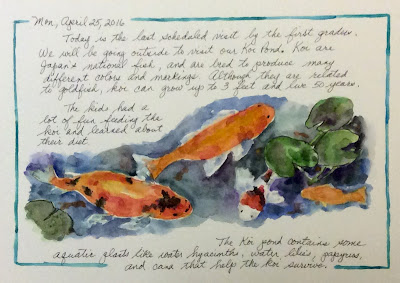 Mon, April 25, 2016
Today is the last scheduled visit by the first graders.
We will be going outside to visit our Koi Pond. Koi are
Japan's national fish, and are bred to produce many
different colors and markings. Although they are related
to goldfish, koi can grow up to 3 feet and live 50 years.
The kids had a
lot of fun feeding the
koi and learned about
their diet.
The Koi pond contains some
aquatic plants like water hyacinths, water lilies, papyrus,
and cana that help the koi survive.